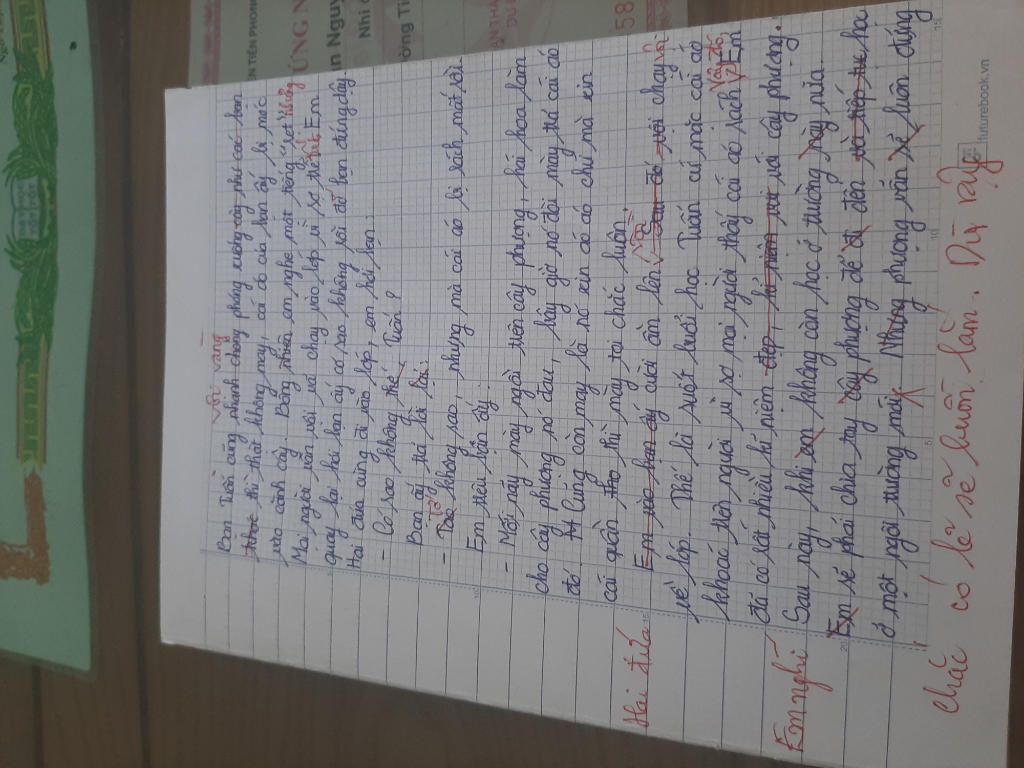 vội vàng
Bạn Tuấn cũng nhanh chóng phóng xuống cây như các bạn
khác thì thật không may, cái áo của bạn ấy bị mắc
vào cành cây. Bỗng nhiên em nghe một tiếng "xẹt" thủng
Mọi người vẫn vội vã chạy vào lớp vì sợ trễ Em
quay lại hỏi bạn ấy có sao không rồi đỡ bạn đứng dậy
Hai đứa cùng đi vào lớp, em hỏi bạn:
- Có sao không thế, Tuấn?
Bạn ấy trả lời lại:
- Tao Tớ không sao, nhưng mà cái áo bị rách mất rồi.
Em trêu bạn ấy:
- Mới nãy mày ngồi trên cây phượng, hái hoa làm
cho cây phượng nó đau, bây giờ nó đòi mày trả cái áo
đó. Cũng còn may là nó xin cái áo chứ mà xin
cái quần thì mày tại chắc luôn.
Hai đứa Em vừa cười ồn lên vừa chạy
về lớp. Thế là suốt buổi học Tuấn cứ mặc cái áo
khoác trên người vì sợ mọi người thấy cái áo rách Vậy đó, Em
đã có rất nhiều kỉ niệm đẹp, với cây phượng.
Em nghĩ Sau này, khi em không còn học ở trường này nữa
Em sẽ phải chia tay cây phượng để đi đến
ở một ngôi trường mới. Nhưng phượng vẫn sẽ luôn đứng
chắc có lẽ sẽ buồn lắm. Dù vậy
futurebook.vn
58